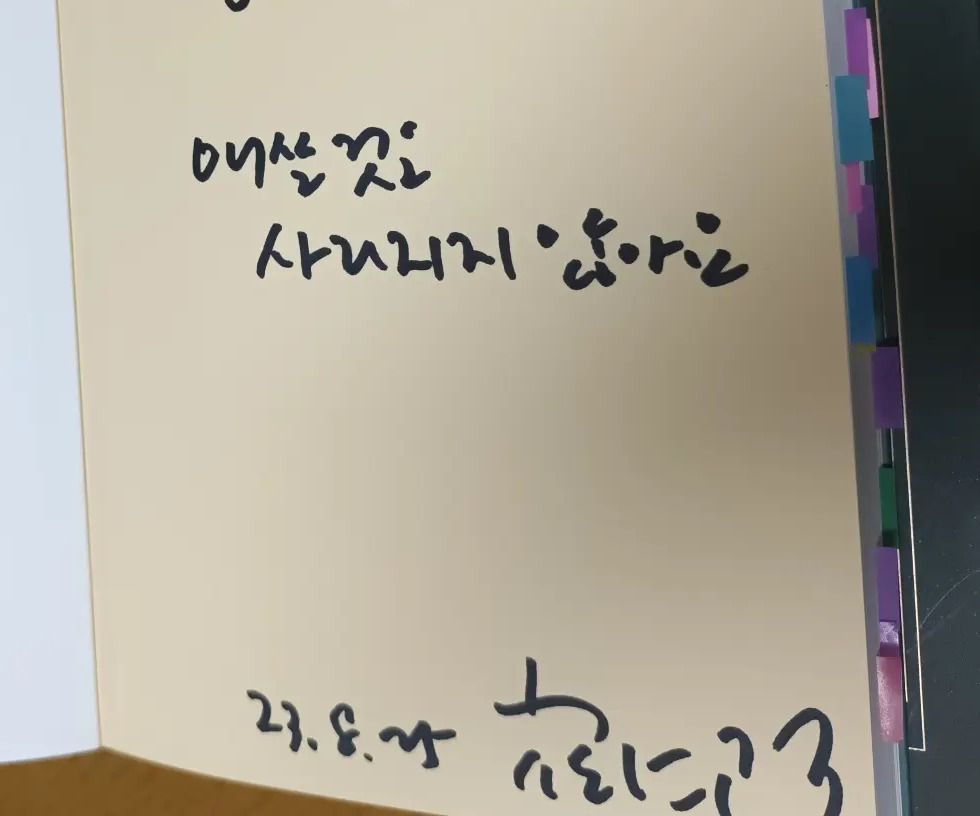 애쓴 것은
사라지지 않아요
23. 8. 25